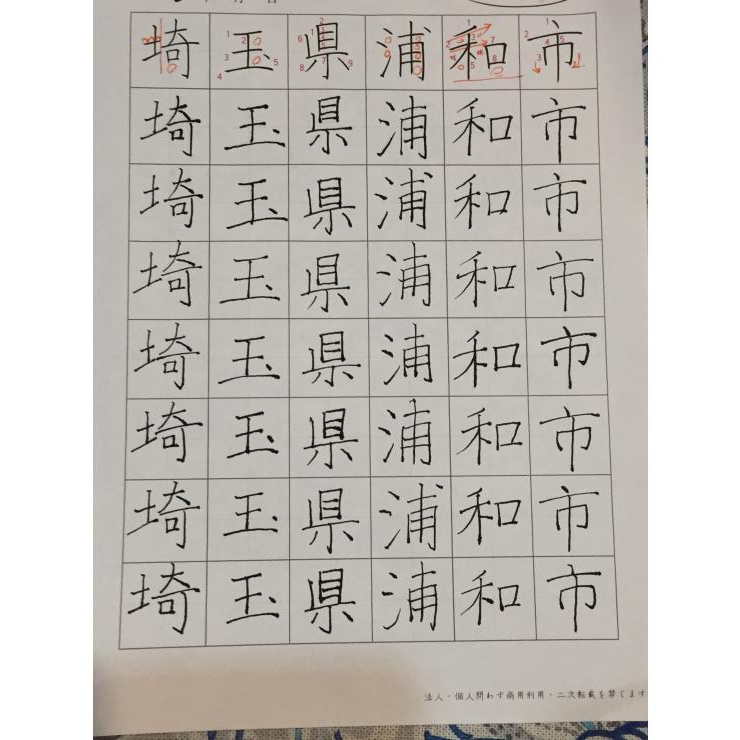 埼玉県浦和市
埼玉県浦和市
埼玉県浦和市
埼玉県浦和市
埼玉県浦和市
埼玉県浦和市
埼玉県浦和市
埼玉県浦和市
法人・個人問わず商用利用・二次転載を禁じます